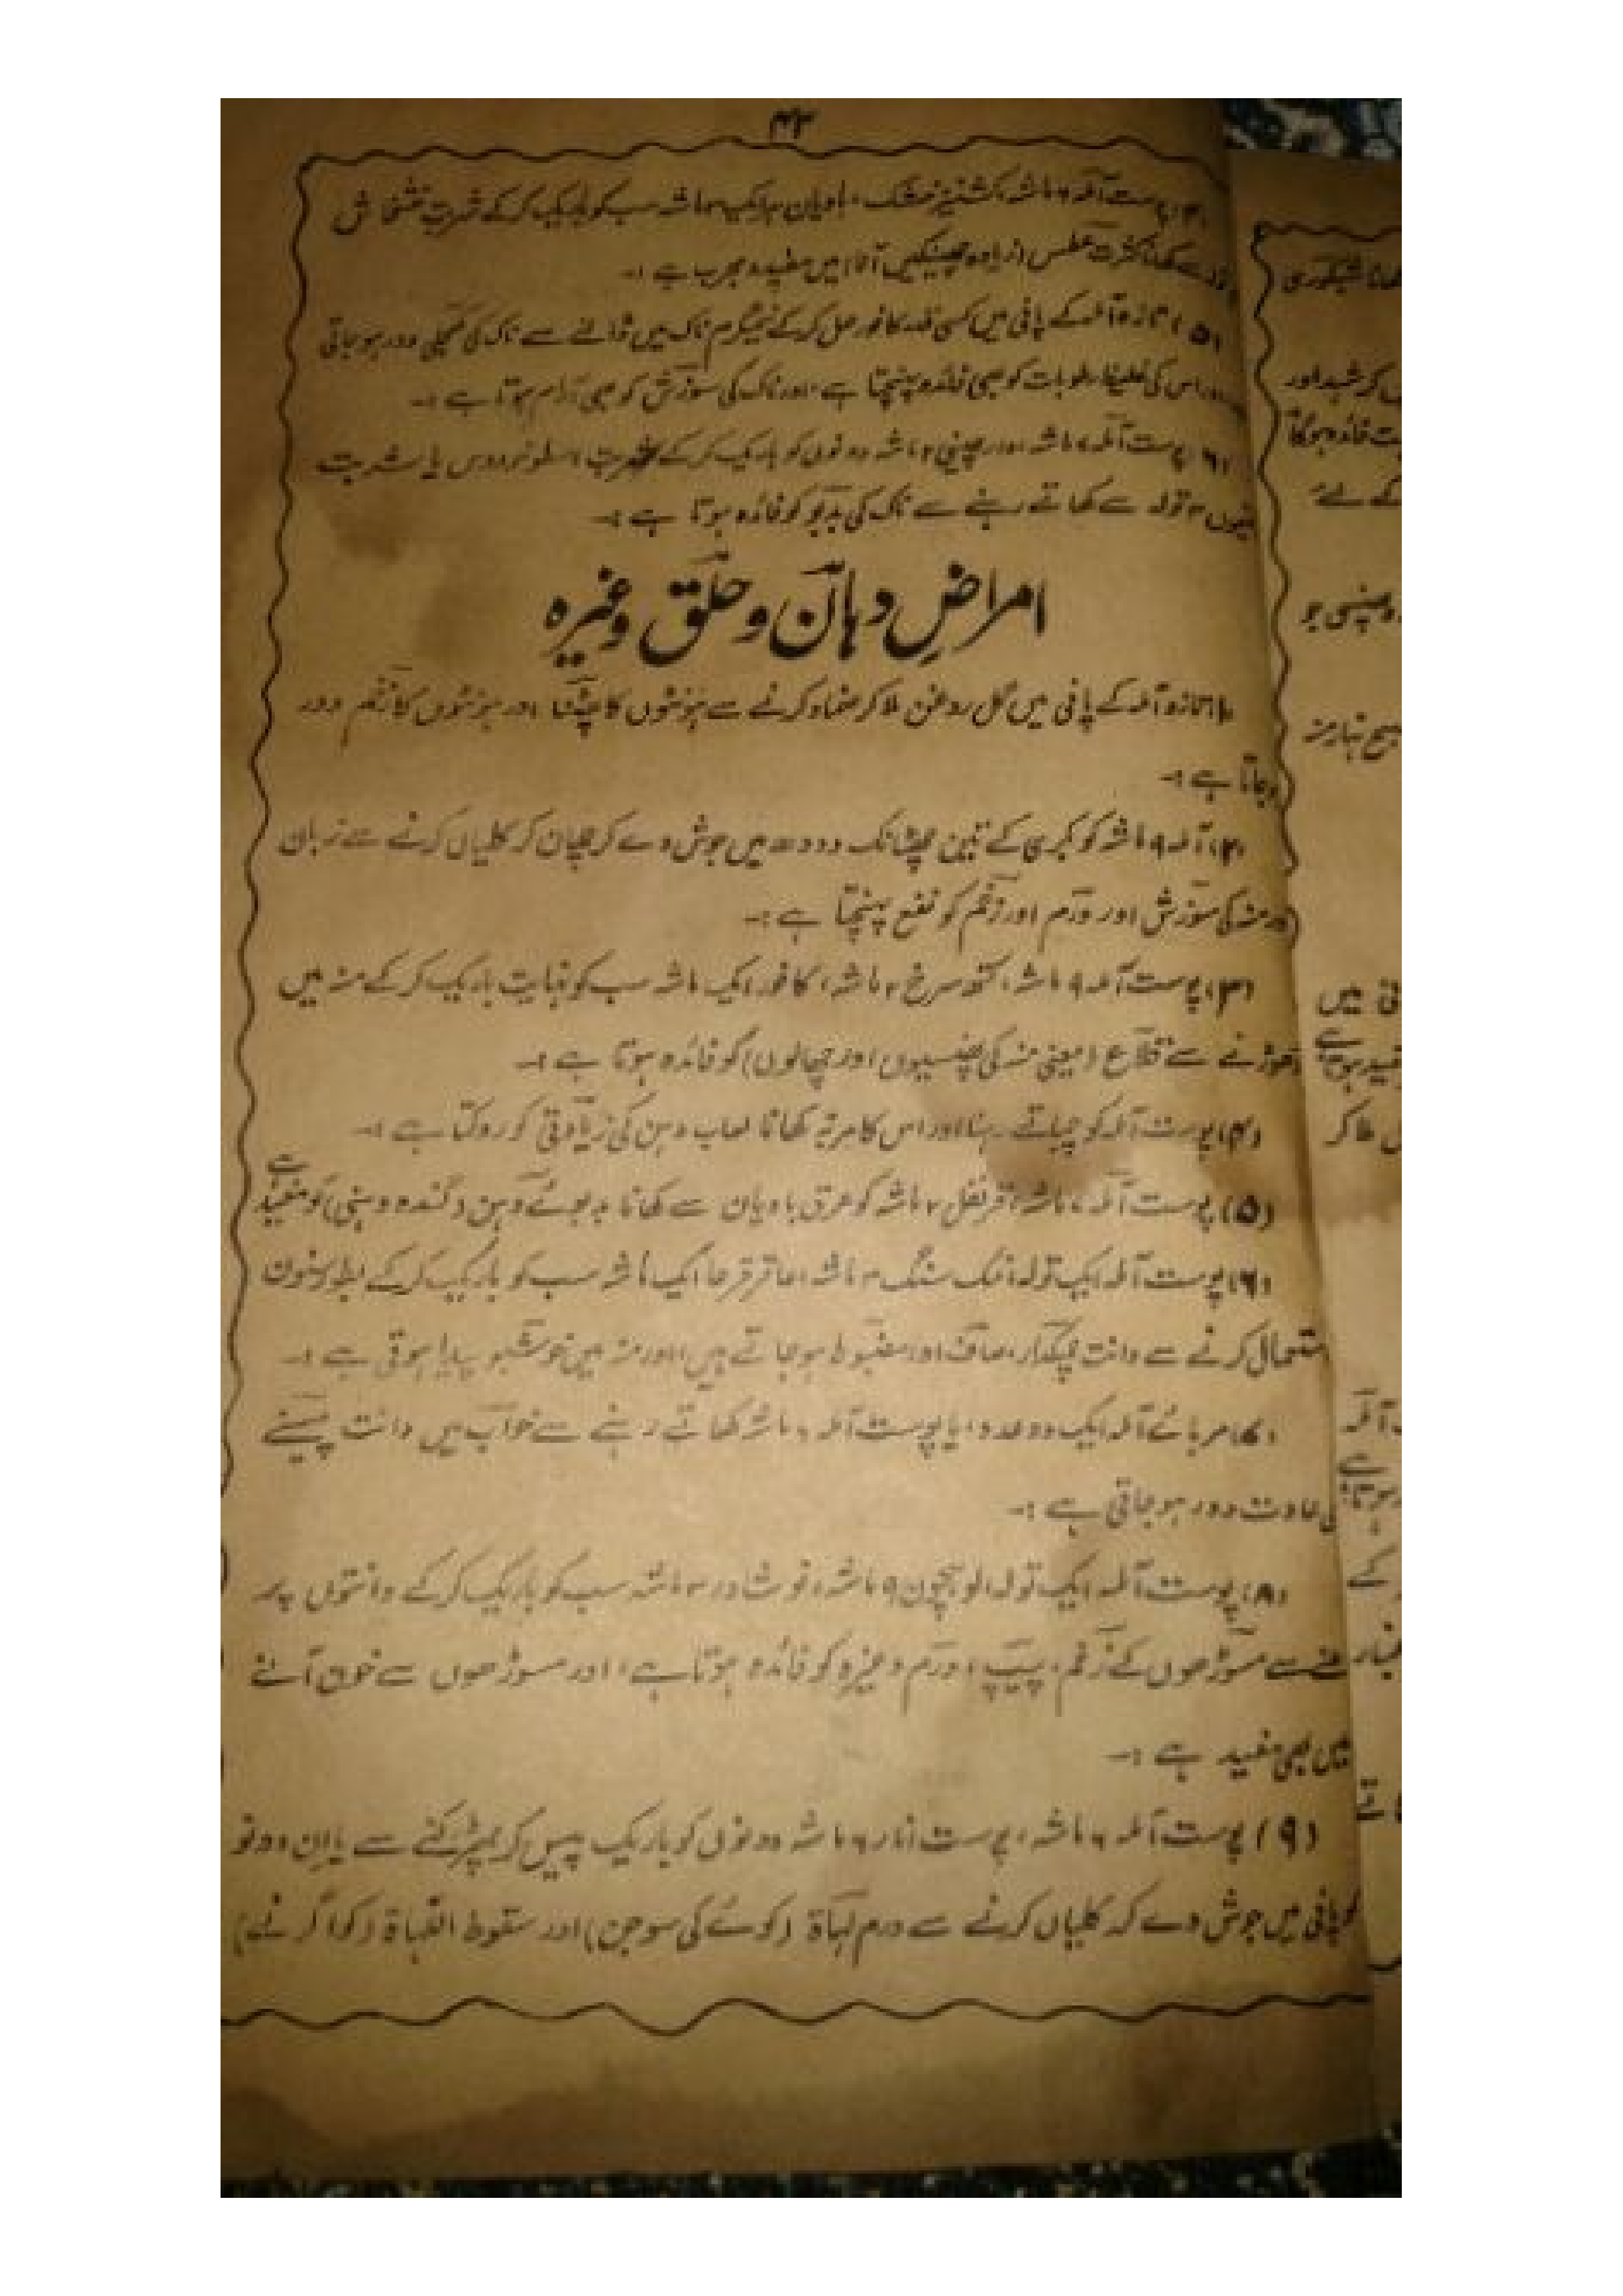 ۴۳
پوست آملہ ۶ ماشہ، کشنیز خشک، بادیان ہر ایک ۳ ماشہ سب کو باریک کر کے شربت خشخاش
سے کھانا کثرت عطس (زیادہ چھینکیں آنا) میں مفید و مجرب ہے :-
(۵) تازہ آملہ کے پانی میں کسی قدر کافور حل کر کے نیمگرم ناک میں ڈالنے سے ناک کی کھجلی دور ہو جاتی
اور اس کی غلیظ رطوبات کو بھی فائدہ پہنچتا ہے، اور ناک کی سوزش کو بھی آرام ہوتا ہے :-
(۶) پوست آملہ ۶ ماشہ، دارچینی ۲ ماشہ دونوں کو باریک کر کے شربت اسطوخودوس یا شربت
لیموں ۲ تولہ سے کھاتے رہنے سے ناک کی بدبو کو فائدہ ہوتا ہے :-
امراضِ دہان و حلق وغیرہ
(۱) تازہ آملہ کے پانی میں گل روغن ملا کر ضماد کرنے سے ہونٹوں کا پھٹنا اور ہونٹوں کا زخم دور
ہوجاتا ہے :-
(۲) آملہ ۹ ماشہ کو بکری کے تین چھٹانک دودھ میں جوش دے کر چھان کر کلیاں کرنے سے زبان
اور منہ کی سوزش اور ورم اور زخم کو نفع پہنچتا ہے :-
(۳) پوست آملہ ۹ ماشہ، کتھ سرخ ۲ ماشہ، کافور ایک ماشہ سب کو نہایت باریک کر کے منہ میں
چھوڑنے سے قلاع (یعنی منہ کی پھنسیوں اور چھالوں) کو فائدہ ہوتا ہے :-
(۴) پوست آملہ کو چباتے رہنا اور اس کا مربہ کھانا لعاب دہن کی زیادتی کو روکتا ہے :-
(۵) پوست آملہ ۶ ماشہ، قرنفل ۲ ماشہ کو عرق بادیان سے کھانا بدبوئے دہن (گندہ دہنی) کو مفید ہے
(۶) پوست آملہ ایک تولہ، نمک سنگ ۳ ماشہ، عاقرقرحا ایک ماشہ سب کو باریک کر کے بطور سنون
استعمال کرنے سے دانت چمکدار، صاف اور مضبوط ہو جاتے ہیں، اور منہ میں خوشبو پیدا ہوتی ہے :-
(۷) مربائے آملہ ایک دو عدد، یا پوست آملہ ۶ ماشہ کھاتے رہنے سے خواب میں دانت پیسنے
کی عادت دور ہو جاتی ہے :-
(۸) پوست آملہ ایک تولہ، لوہچون ۹ ماشہ، نوشادر ۳ ماشہ سب کو باریک کر کے دانتوں پر
ملنے سے مسوڑھوں کے زخم، پیپ، ورم وغیرہ کو فائدہ ہوتا ہے، اور مسوڑھوں سے خون آنے
میں بھی مفید ہے :-
(۹) پوست آملہ ۶ ماشہ، پوست انار ۶ ماشہ دونوں کو باریک پیس کر چھڑکنے سے یا ان دونو
کو پانی میں جوش دے کر کلیاں کرنے سے ورم لہاۃ (کوے کی سوجن) اور سقوط اللہاۃ (کوا گرنے)